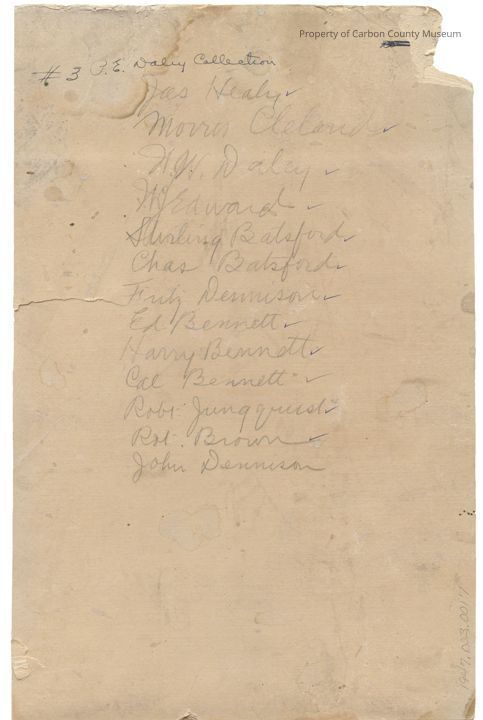 Property of Carbon County Museum
#3 P.E. Daley Collection
Jas Healy ✓
Morris Cleland ✓
W. Daley ✓
Edward ✓
Stirling Batsford ✓
Chas Batsford ✓
Fritz Dennison ✓
Ed Bennett ✓
Harry Bennett ✓
Cal Bennett ✓
Robt. Jungquist ✓
Rot. Brown ✓
John Dennison